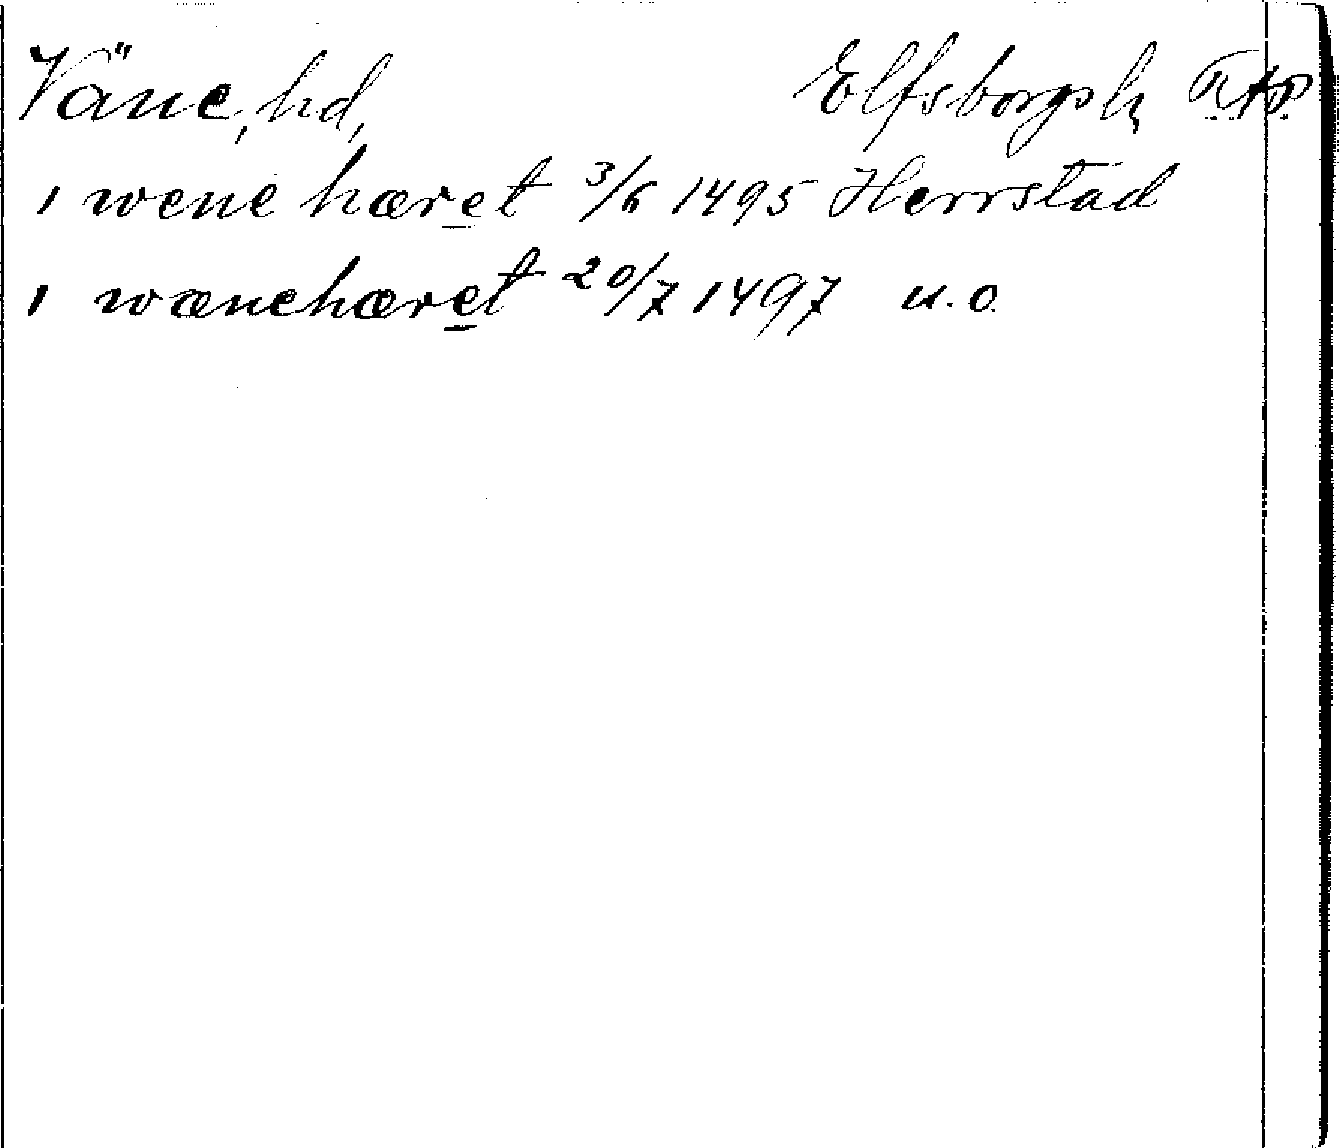 Väne, hd, Elfsborgs l. RAp
i wene hæret 3/6 1495 Herrstad
i wænehæret 20/7 1497 u.o.